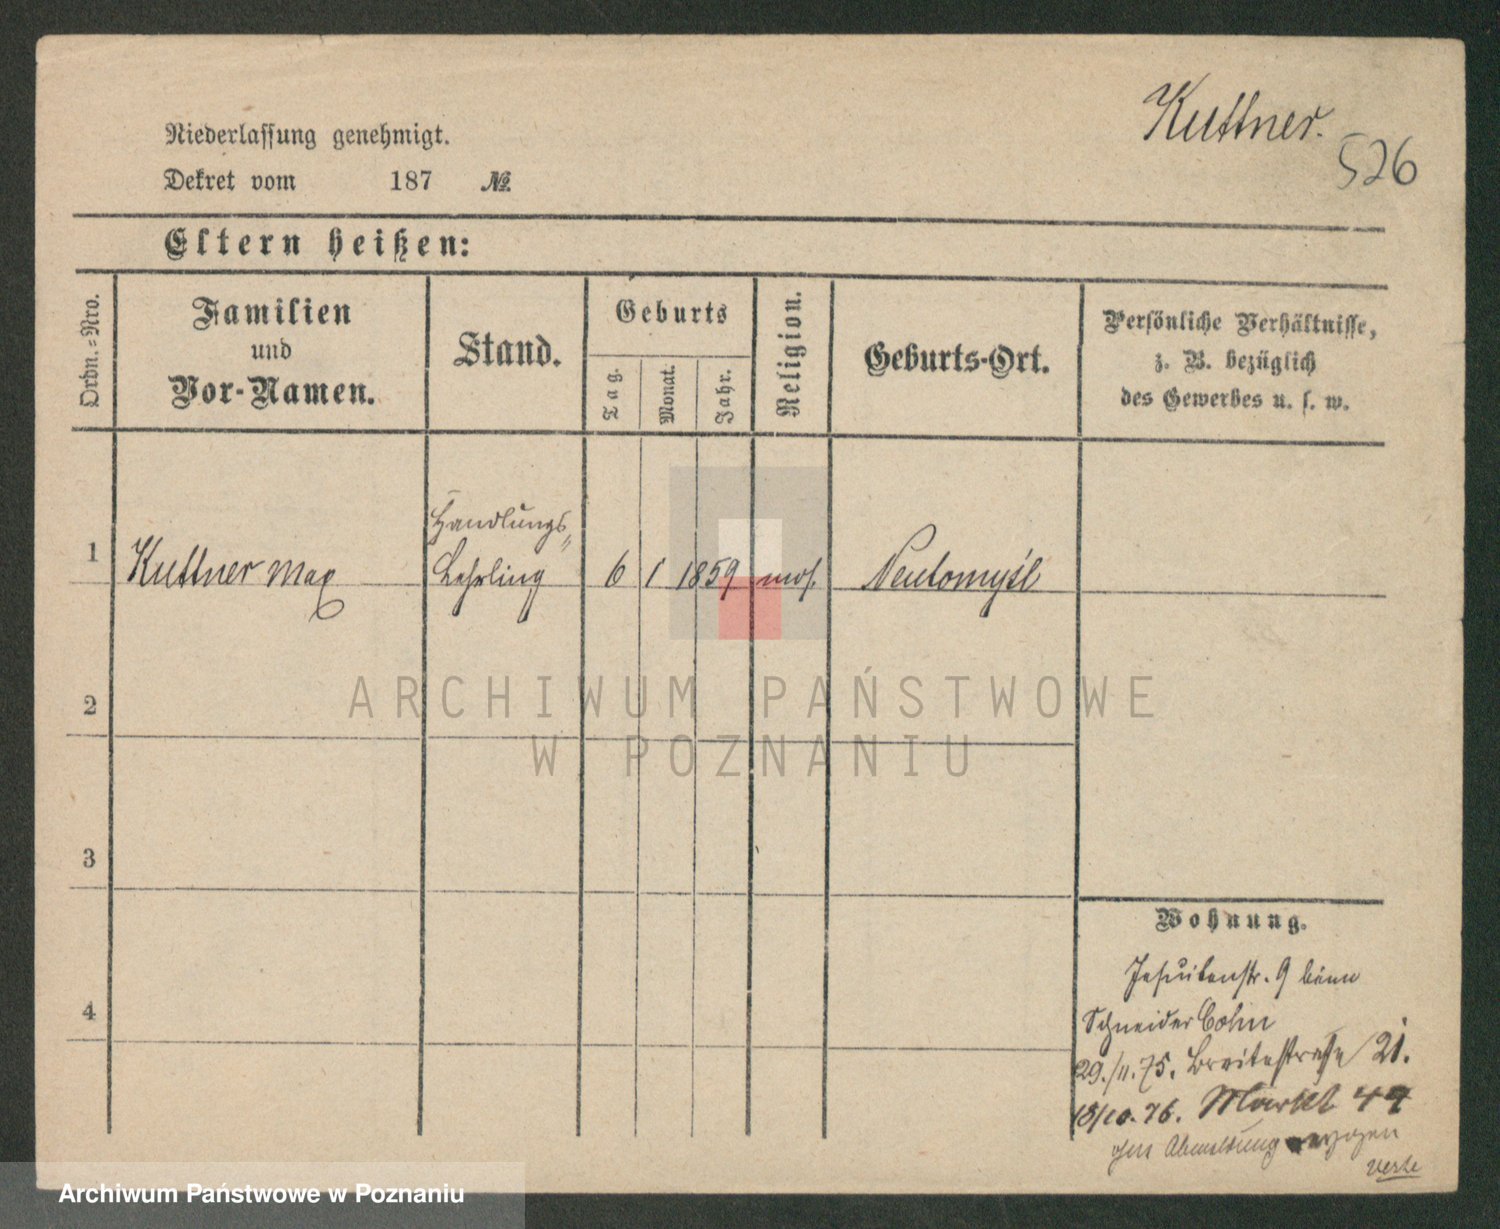 Kuttner.
526
Niederlassung genehmigt.
Dekret vom 187 №
Eltern heißen:
Ordn.=Nro.
Familien
und
Vor-Namen.
Stand.
Geburts
Tag.
Monat.
Jahr.
Religion.
Geburts-Ort.
Persönliche Verhältnisse,
z. B. bezüglich
des Gewerbes u. s. w.
Handlungs
1 Kuttner Max Lehrling 6 1 1859 mos. Neutomyśl
2
3
4
Wohnung.
Jesuitenstr. 9 beim
Schneider Cohn
29./11. 75. Breitestraße 21.
18/10. 76. Markt 44
Abmeldung
ARCHIWUM PAŃSTWOWE
W POZNANIU
Archiwum Państwowe w Poznaniu